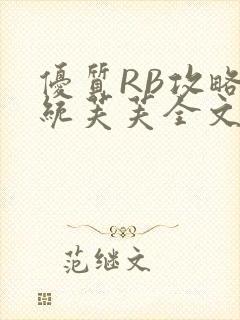 優質RB攻略
統芙芙全文
范继文